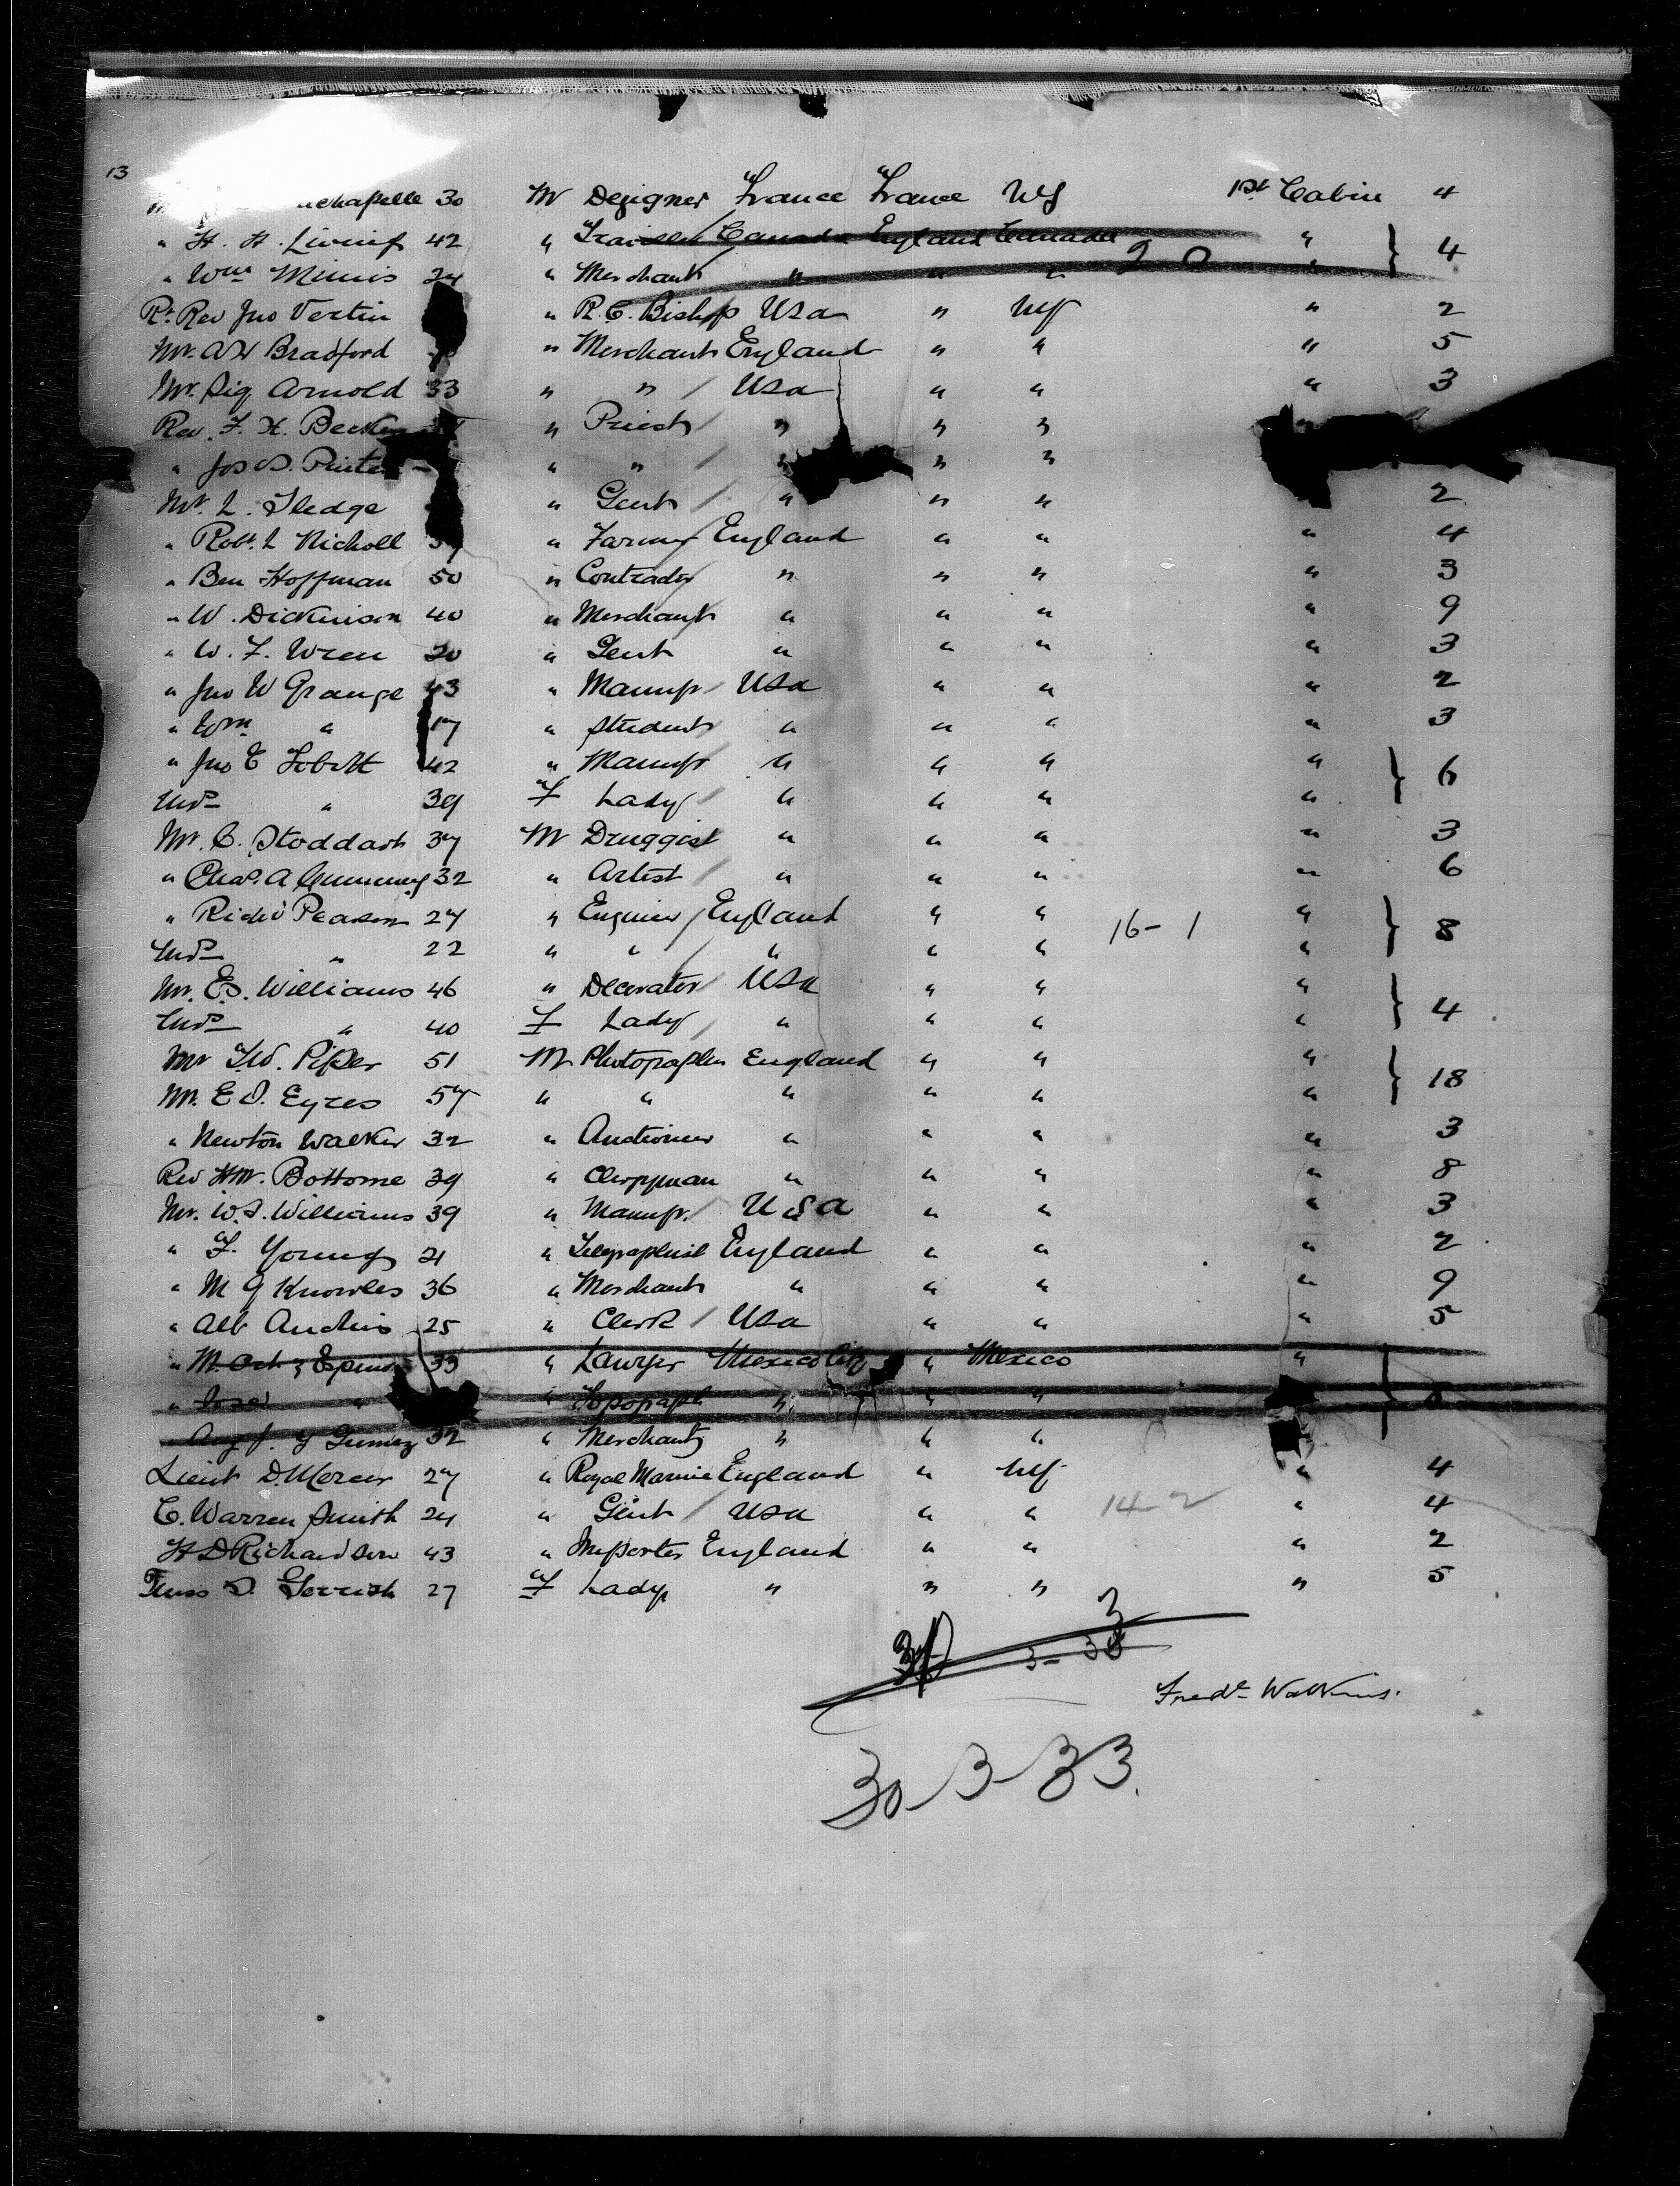 13
chapelle 30 M Designer France France NY 1st Cabin 4
" H. H. 42 " Canada England Canada "
" Wm Mimis 24 " Merchant " " " 2 0 " } 4
Rt. Rev Jno Vertin " R. C. Bishop USA " NY " 2
Mr. A H Bradford " Merchant England " " " 5
Mr. Sig Arnold 33 " " USA " " " 3
Rev. F. X. Becker " Priest " " " "
" Jos " " " " "
Mr. L. Sledge " Gent " " " 2
" Robt. L Nicholl " Farmer England " " " 4
" Ben Hoffman 50 " Contractor " " " " 3
" W. Dickinson 40 " Merchant " " " " 9
" W. F. Wren 20 " Gent " " " " 3
" Jno W Grange 43 " Manufr USA " " " 2
" Wm " 17 " Student " " " " 3
" Jno E 42 " Manufr " " " " } 6
Mrs " 39 F Lady " " " "
Mr. C. Stoddart 37 M Druggist " " " " 3
" Chas. A Cumming 32 " Artist " " " " 6
" Richd Pearson 27 " Engineer England " " 16 - 1 " } 8
Mrs " 22 " " " " " "
Mr. E. S. Williams 46 " Decorator USA " " " } 4
Mrs " 40 F Lady " " " "
Mr T. W. Piper 51 M Photographer England " " " } 18
Mr. E D. Eyres 57 " " " " " "
" Newton Walker 32 " Auctioneer " " " " 3
Rev H M. Bottome 39 " Clergyman " " " " 8
Mr. W. S. Williams 39 " Manufr. USA " " " 3
" F. Young 21 " Telegraphist England " " " 2
" M G Knowles 36 " Merchant " " " " 9
" Alb 25 " Clerk USA " " " 5
" M. 33 " Lawyer Mexico City " Mexico "
" Jose " " Topograph " " "
Aug J. y Gumez 32 " Merchant " " "
Lieut D. Mercer 27 " Royal Marine England " NY " 4
C. Warren Smith 24 " Gent USA " " 14 - 2 " 4
H D Richardson 43 " Importer England " " " 2
Miss S. Gerrish 27 F Lady " " " " 5
3
3 - 38
Fredk Watkins.
30 - 3 - 33.